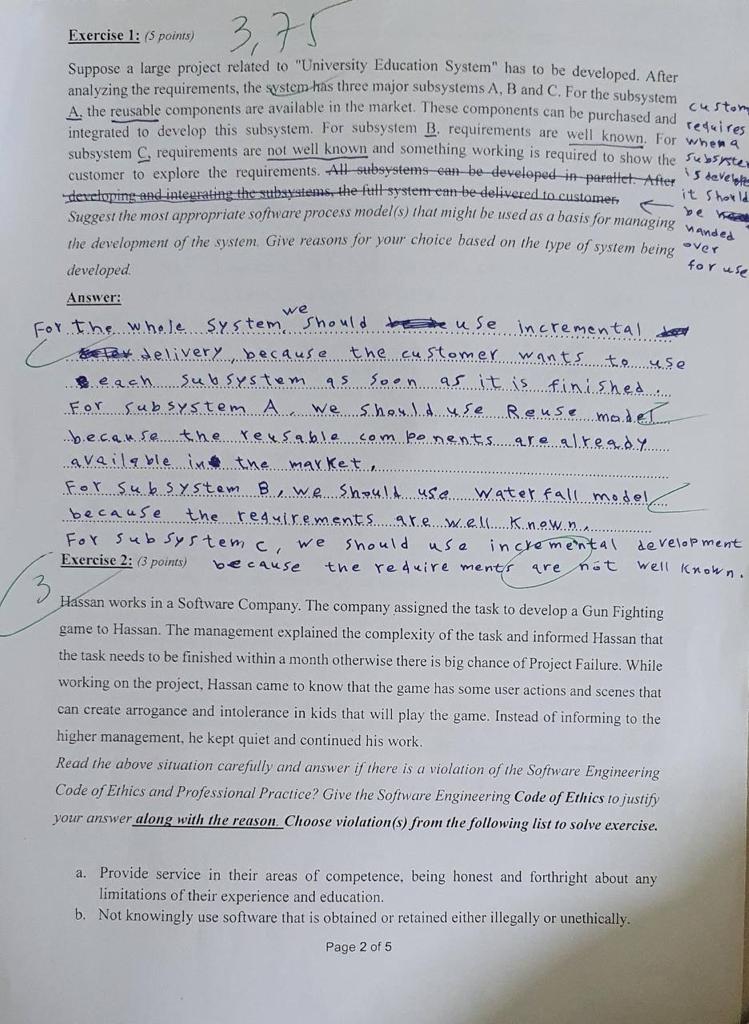 Exercise 1: (5 points)
3,75
Suppose a large project related to "University Education System" has to be developed. After
analyzing the requirements, the system has three major subsystems A, B and C. For the subsystem
A, the reusable components are available in the market. These components can be purchased and
integrated to develop this subsystem. For subsystem B, requirements are well known. For
subsystem C, requirements are not well known and something working is required to show the
customer to explore the requirements. All subsystems can be developed in parallel. After
developing and integrating the subsystems, the full system can be delivered to customer.
custom
requires
when a
subsystem
is develope
it should
be
handed
over
for use
Suggest the most appropriate software process model(s) that might be used as a basis for managing
the development of the system. Give reasons for your choice based on the type of system being
developed.
Answer:
For the whole system, we should use incremental
delivery, because the customer wants to use
each subsystem as soon as it is finished.
For subsystem A, we should use Reuse model
because the reusable components are already
available in the market,
For subsystem B, we should use waterfall model
because the requirements are well known.
For subsystem C, we should use incremental development
because the requirements are not well known.
Exercise 2: (3 points)
3
Hassan works in a Software Company. The company assigned the task to develop a Gun Fighting
game to Hassan. The management explained the complexity of the task and informed Hassan that
the task needs to be finished within a month otherwise there is big chance of Project Failure. While
working on the project, Hassan came to know that the game has some user actions and scenes that
can create arrogance and intolerance in kids that will play the game. Instead of informing to the
higher management, he kept quiet and continued his work.
Read the above situation carefully and answer if there is a violation of the Software Engineering
Code of Ethics and Professional Practice? Give the Software Engineering Code of Ethics to justify
your answer along with the reason. Choose violation(s) from the following list to solve exercise.
a. Provide service in their areas of competence, being honest and forthright about any
limitations of their experience and education.
b. Not knowingly use software that is obtained or retained either illegally or unethically.
Page 2 of 5